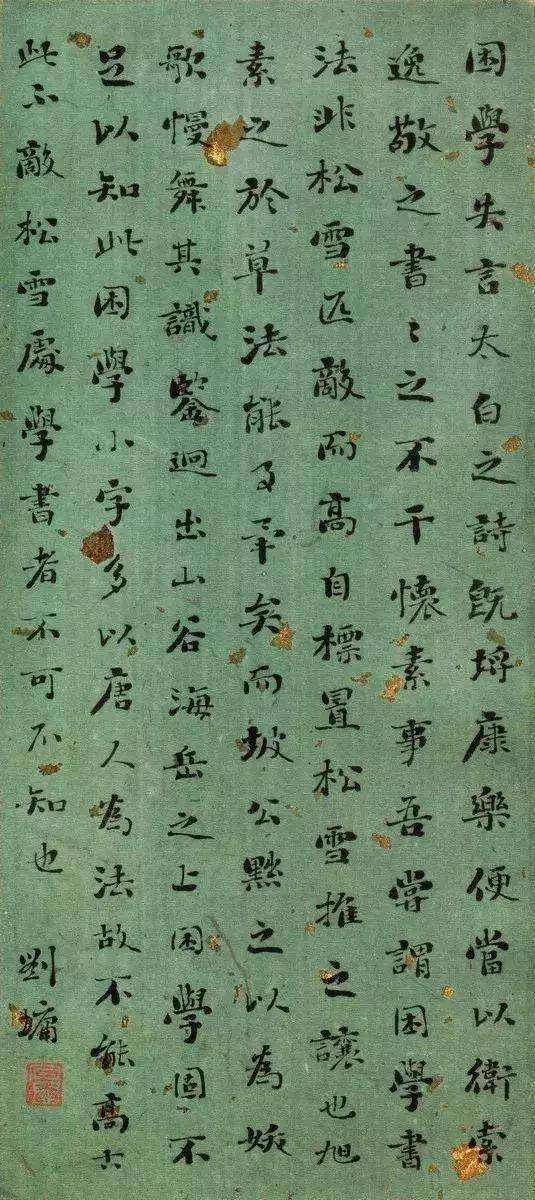 困學失言太白之詩既埒康樂便當以衛索
逸敬之書〻之不干懷素事吾嘗謂困學書
法非松雪匹敵而高自標置松雪推之讓也旭
素之於草法能事卒矣而坡公黜之以為妖
歌慢舞其識鑒迥出山谷海岳之上困學固不
足以知此困學小字多以唐人為法故不能高古
此不敵松雪處學書者不可不知也 劉墉